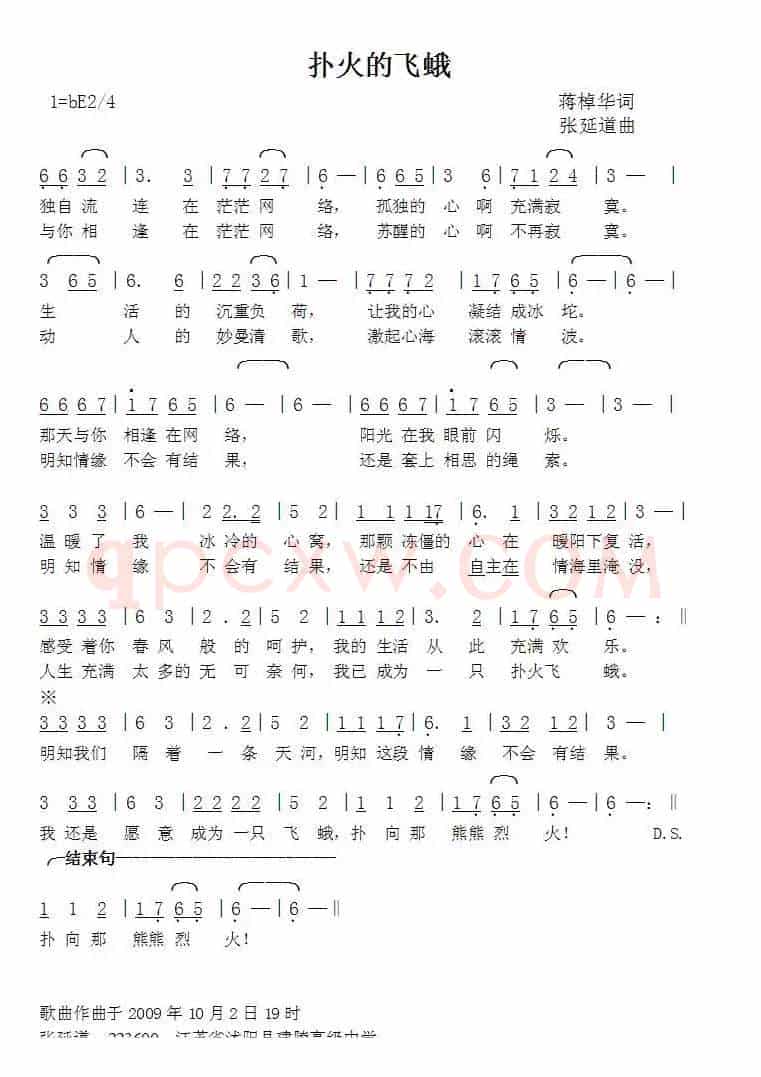 扑火的飞蛾
1=bE2/4
蒋棹华词
张延道曲
6 6 3 2 |3. 3 |7 7 2 7 |6 — |6 6 5 3 6 |7 1 2 4 |3 — |
独自 流 连 在 茫茫 网 络， 孤独的 心 啊 充满 寂 寞。
与你 相 逢 在 茫茫 网 络， 苏醒的 心 啊 不再 寂 寞。
3 6 5 |6. 6 |2 2 3 6 |1 — |7 7 7 2 |1 7 6 5 |6 — |6 — |
生 活 的 沉重负 荷， 让我的心 凝结 成冰 坨。
动 人 的 妙曼清 歌， 激起心海 滚滚 情 波。
6 6 6 7 |1 7 6 5 |6 — |6 — |6 6 6 7 |1 7 6 5 |3 — |3 — |
那天与你 相逢 在网 络， 阳光 在我 眼前 闪 烁。
明知情缘 不会 有结 果， 还是 套上 相思 的绳 索。
3 3 3 |6 — |2 2. 2 |5 2 |1 1 1 1 7 |6. 1 |3 2 1 2 |3 — |
温 暖 了 我 冰 冷的 心 窝， 那颗 冻僵的 心 在 暖阳下复 活，
明 知 情 缘 不 会有 结 果， 还是 不由 自主在 情海里淹 没，
3 3 3 3 |6 3 |2 . 2 |5 2 |1 1 1 2 |3. 2 |1 7 6 5 |6 — :‖
感受 着你 春 风 般 的 呵 护， 我的 生活 从 此 充满 欢 乐。
人生 充满 太 多的 无 可 奈 何， 我已 成为 一 只 扑火飞 蛾。
※
3 3 3 3 |6 3 |2 . 2 |5 2 |1 1 1 7 |6. 1 |3 2 1 2 |3 — |
明知我们 隔 着 一 条 天 河，明知 这段 情 缘 不会 有结 果。
3 3 3 |6 3 |2 2 2 2 |5 2 |1 1 2 |1 7 6 5 |6 — :‖
我 还是 愿 意 成为 一只 飞 蛾，扑 向 那 熊熊 烈 火！ D.S.
结束句
1 1 2 |1 7 6 5 |6 — |6 — ‖
扑 向 那 熊熊 烈 火！
歌曲作曲于 2009 年 10 月 2 日 19 时
张延道
qpcxw.com